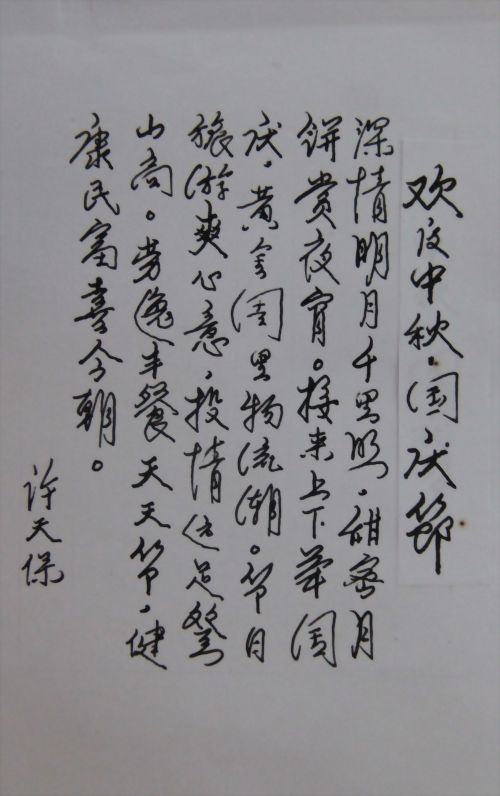 欢度中秋.国庆節
深情明月千里照，甜蜜月
餅赏夜宵。接来上下举国
庆，黄金周里物流潮。节日
旅游爽心意，投情远足
山高。劳逸丰餐天天节，健
康民富喜今朝。
许天保